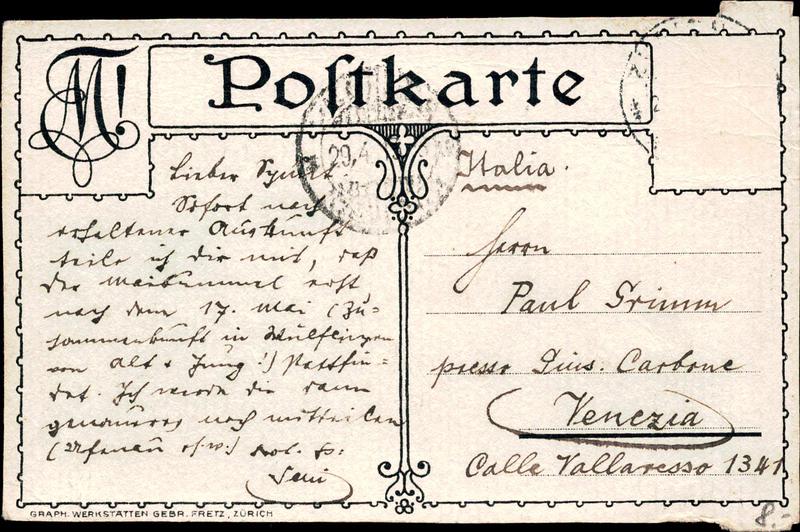 Postkarte
29.4
Lieber
Sofort nach
erhaltener Auskunft
teile ich dir mit, daß
der Maibummel erst
nach dem 17. Mai (Zu=
sammenkunft in Wülflingen
von Alt & Jung!) stattfin=
det. Ich werde dir dann
genaueres noch mitteilen
(Ufenau
Italia.
Herrn
Paul Grimm
presso Gius. Carbone
Venezia
Calle Vallaresso 1341
GRAPH. WERKSTÄTTEN GEBR. FRETZ, ZÜRICH
8.-